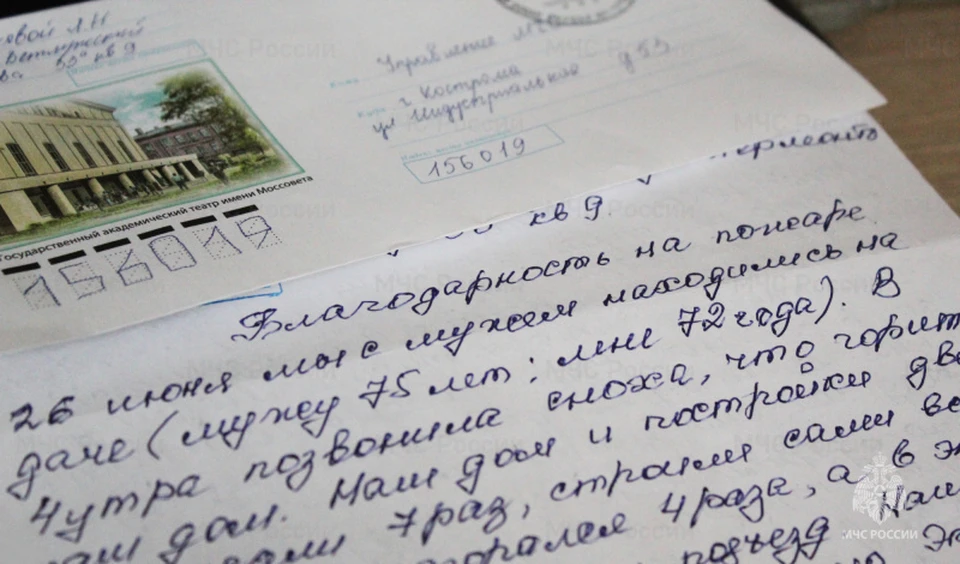 овой Л.Н
Ветлужский
ва 50а кв 9
Управление МЧС
г Кострома
ул Индустриальная д 53
156019
Государственный академический театр имени Моссовета
156019
кв 9.
Благодарность на пожаре
26 июня мы с мужем находились на
даче (мужу 75 лет; мне 72 года). В
4 утра позвонила сноха, что горит
наш дом. Наш дом и постройки две
7 раз, строили сами вс
горался 4 раза, а в э
подъезд наш
МЧС РОССИИ